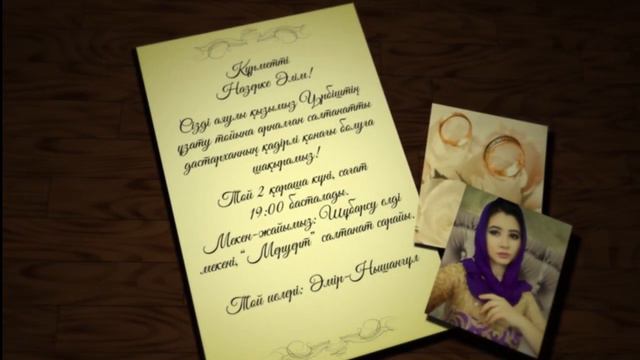 Құрметті
Назерке Әлім!
Сізді аяулы қызымыз Ұзату тойына арналған салтанатты
дастарханның қадірлі қонағы болуға
шақырамыз!
Той 2 қараша күні, сағат
19:00 басталады.
Мекен-жайымыз: Шұбарсу елді
мекені, "Меруерт" салтанат сарайы.
Той иелері: Әмір-Нышангүл